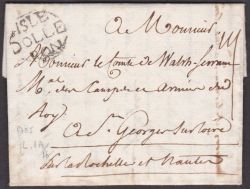 ISLE
DOLE
RON
A Monsieur
Monsieur le Comte de Walsh Serrant
M.al des Camps et Armées du
Roy
A St Georges Sur Loire
Par la Rochelle et Nantes